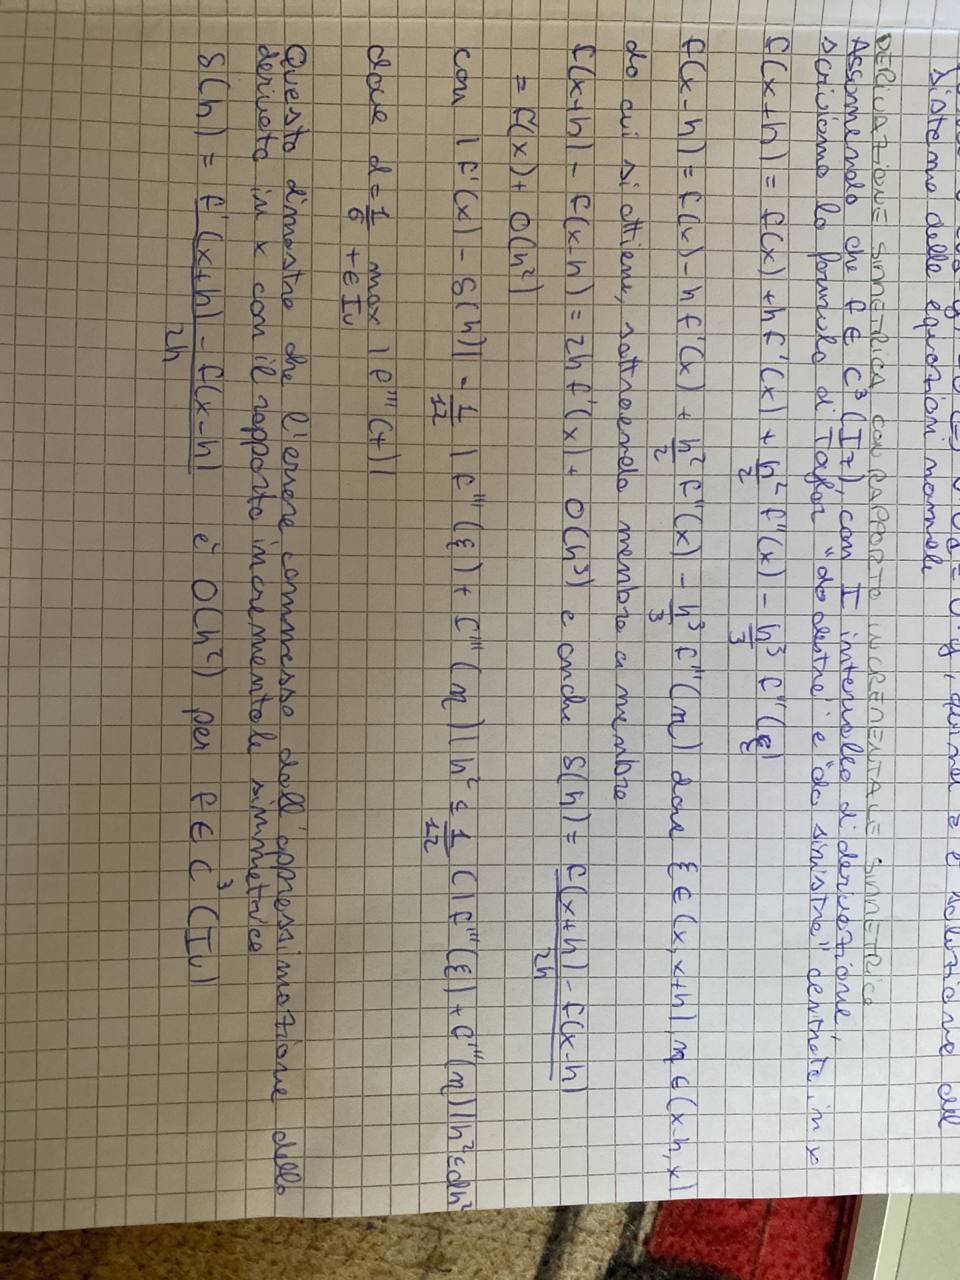 sistema delle equazioni normale
DERIVAZIONE SIMMETRICA CON RAPPORTO INCREMENTALE SIMMETRICO
Assumendo che f ∈ C³ (Iz), con I intervallo di derivazione,
scriviamo la formula di Taylor "da destra" e "da sinistra" centrata in x
f(x+h) = f(x) + h f'(x) + h²/2 f''(x) - h³/3 f'''(ξ)
f(x-h) = f(x) - h f'(x) + h²/2 f''(x) - h³/3 f'''(η) dove ξ ∈ (x, x+h), η ∈ (x-h, x)
da cui si ottiene, sottraendo membro a membro
f(x+h) - f(x-h) = 2h f'(x) + O(h³) e anche δ(h) = f(x+h) - f(x-h)/2h
= f(x) + O(h²)
con |f'(x) - δ(h)| - 1/12 |f'''(ξ) + f'''(η)| h² ≤ 1/12 (|f'''(ξ) + f'''(η)| h² ≤ dh²
dove d = 1/6 max t ∈ Iu |f'''(t)|
Questo dimostra che l'errore commesso dall'appressimazione della
derivata in x con il rapporto incrementale simmetrice
δ(h) = f'(x+h) - f(x-h)/2h è O(h²) per f ∈ C³ (Iu)